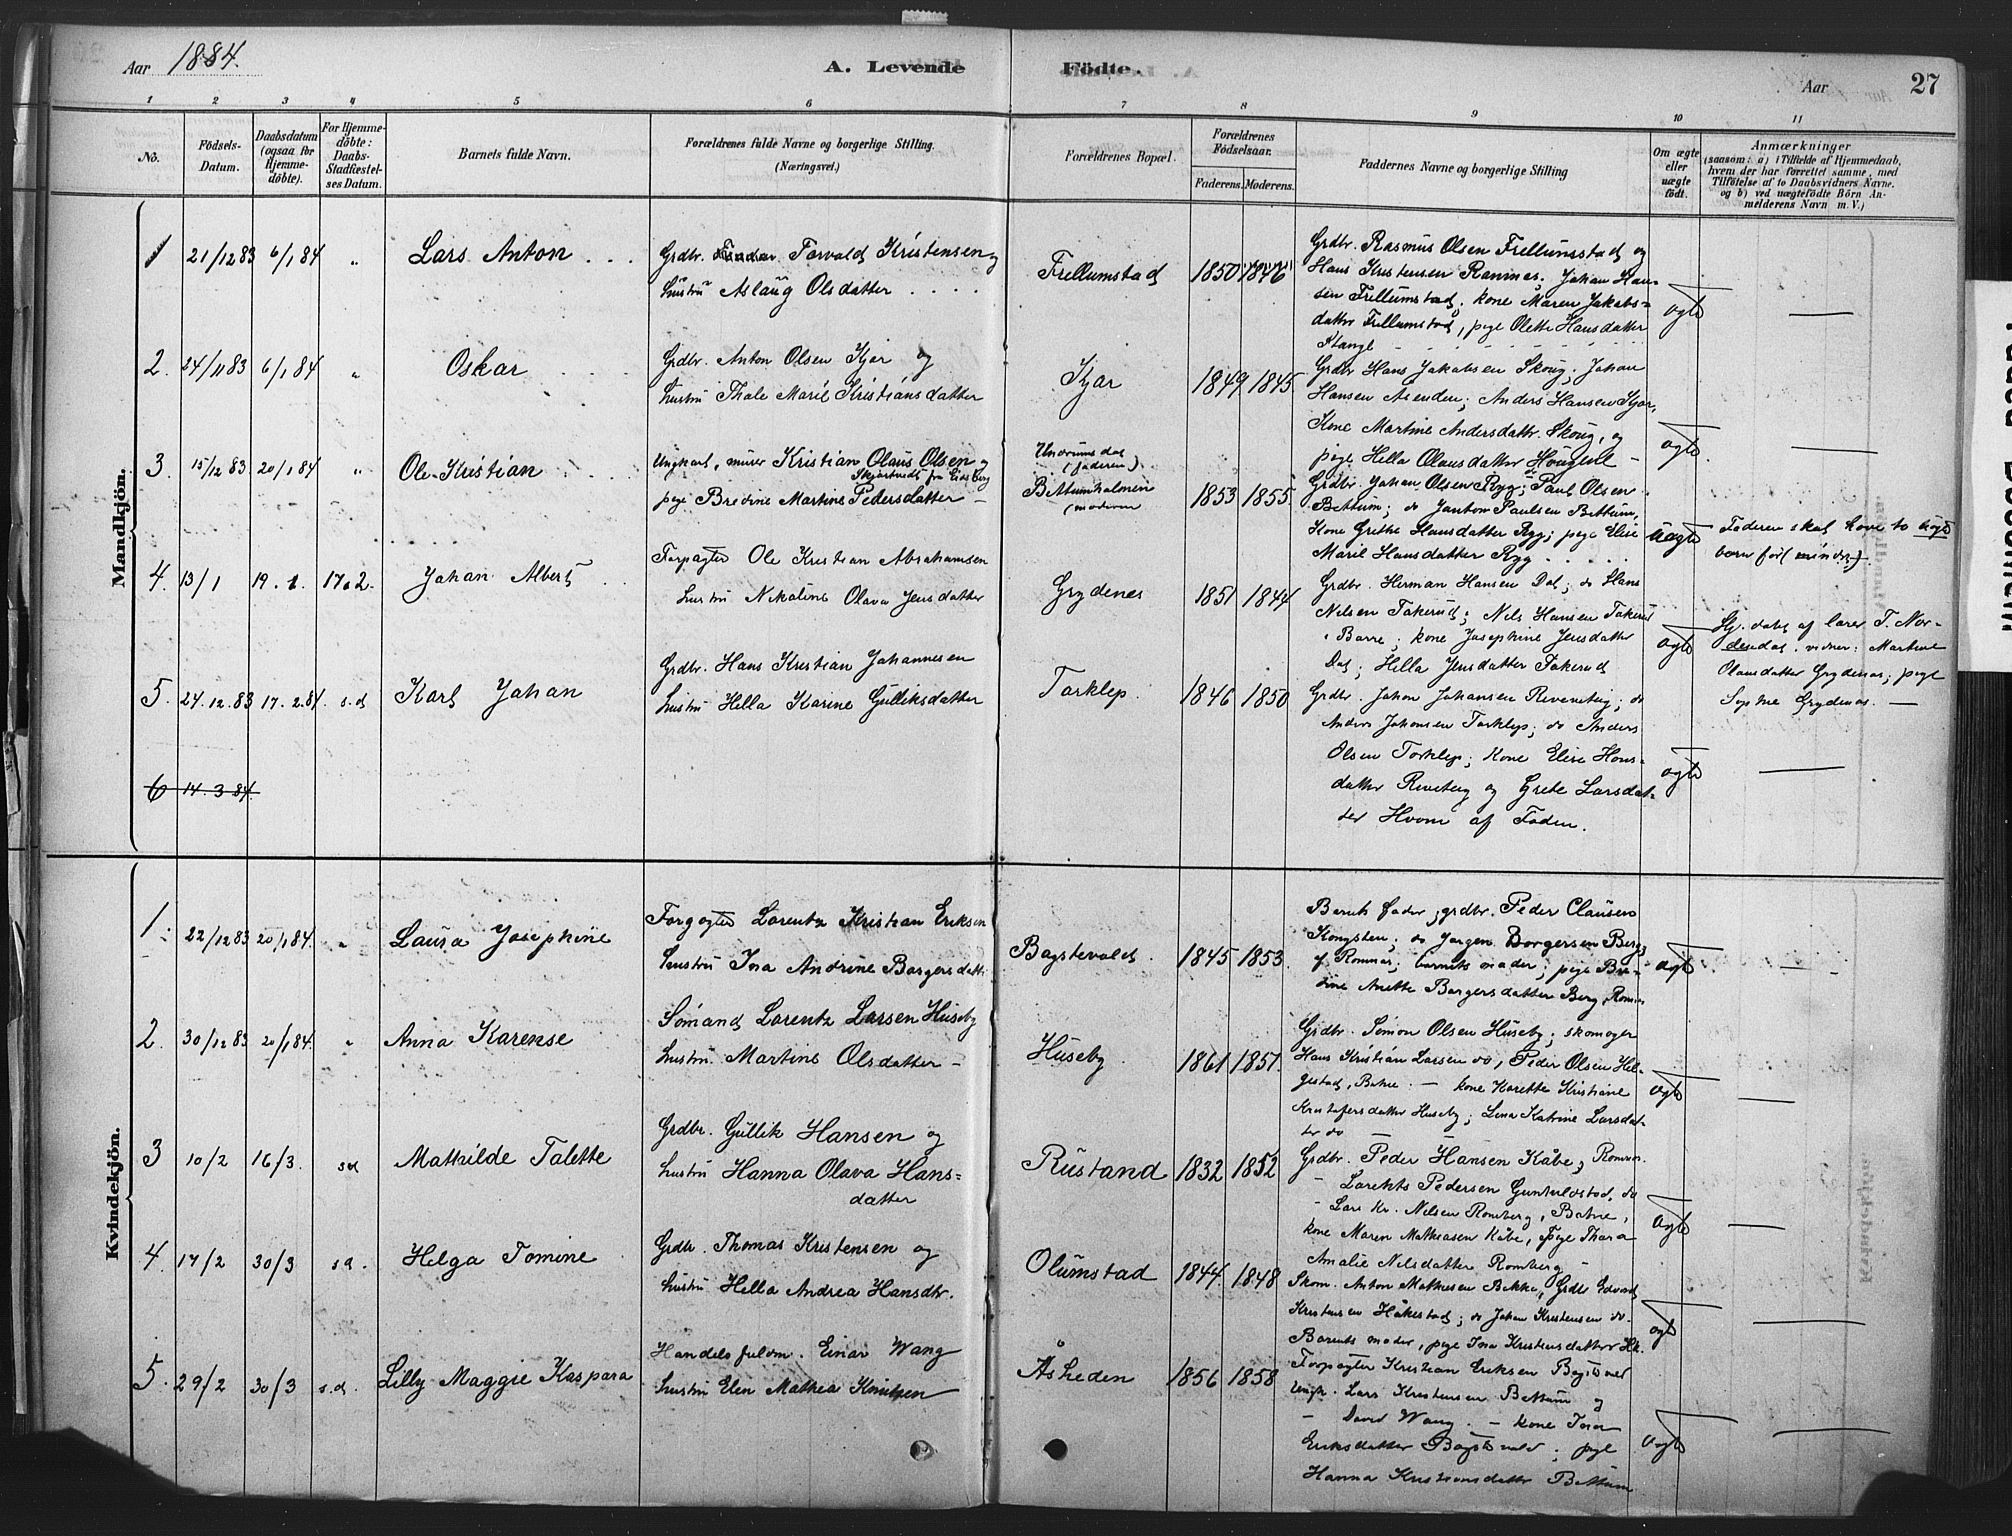 Aar 1884.
A. Levende Födte.
Aar 27
1 2 3 4 5 6 7 8 9 10 11
No.
Födsels-Datum.
Daabsdatum (ogsaa for Hjemme-döbte).
For Hjemme-döbte: Daabs-Stadfæstel-ses Datum.
Barnets fulde Navn.
Forældrenes fulde Navne og borgerlige Stilling. (Næringsvei.)
Forældrenes Bopæl.
Forældrenes Födselsaar.
Faderens. Moderens.
Faddernes Navne og borgerlige Stilling
Om ægte eller uægte födt.
Anmærkninger
(saasom: a) i Tilfælde af Hjemmedaab,
hvem der har forrettet samme, med
Tilföielse af to Daabsvidners Navne.
og b) ved uægtefödte Börn An-
melderens Navn m. V.)
Mandkjön.
1 21/12 83 6/1 84 " Lars Anton
Grdbr. Torvald Kristensen og
hustru Aslaug Olsdatter
Frellumstad 1850 1846
Grdbr. Rasmus Olsen Frellumstad og
Hans Kristensen Ramnæs, Johan Han-
sen Frellumstad, kone Maren Jakobs-
datter Frellumstad, pige Olette Hansdatter
Stange
ægte —
2. 24/11 83 6/1 84 " Oskar
Grdbr. Anton Olsen Kjær og
hustru Thale Marie Kristiansdatter
Kjær 1849 1845
Grdbr Hans Jakobsen Skoug, Johan
Hansen Asenden; Anders Hansen Kjær,
Kone Martine Andersdattr. Skoug, og
pige Hella Olausdatter Hougen
ægte —
3. 15/12 83 20/1 84 " Ole Kristian
Ungkarl, murer Kristian Olaus Olsen og
pige Bredine Martine Pedersdatter —
Undrumsdal (faderen)
Bettumholmen (moderen
1853 1855
Grdbr. Johan Olsen Ryg; Paul Olsen
Bettum; do Janton Paulsen Bettum,
Kone Grethe Hansdatter Ryg; pige Elise
Marie Hansdatter Ryg
uægte
Faderen skal have to uægte
børn før (mindst).
4. 13/1 19. 1. 17.2. Johan Albert
Forpagter Ole Kristian Abrahamsen
hustru Nikoline Olava Jensdatter
Grydenes 1851 1844
Grdbr. Herman Hansen Dal; do Hans
Nelsen Takerud; Nels Hansen Takerud
i Borre; kone Josephine Jensdatter
Dal; Hella Jensdatter Takerud
ægte
Hj. døbt af lærer T. Nor-
dendal. vidner: Martine
Olausdatter Grydenæs; pige
Sophie Grydenæs. —
5. 24.12.83 17.2.84. s.d Karl Johan
Grdbr. Hans Kristian Johannesen
hustru Hella Karine Gulliksdatter
Torklep. 1846 1850
Grdbr. Johan Johansen Reveneberg; do
Anders Johansen Torklep; do Anders
Olsen Torklep; kone Elise Hans-
datter Reveberg og Grete Larsdat-
ter Hvom af Foden.
ægte —
6 14.3.84.
Kvindekjön.
1. 22/12 83 20/1 84. " Laura Josephine
Forpagter Lorentz Kristian Eriksen
hustru Ina Andrine Borgersdatt.
Bogstevold. 1845 1853.
Barnets fader, grdbr. Peder Clausen
Kongsten; do Jorgen Borgersen Berg,
af Ramnæs, barnets moder; pige Bre-
dine Anette Borgersdatter Berg, Ramnæs
ægte —
2. 30/12 83 20/1 84. " Anna Karense
Sømand Lorentz Larsen Huseby
hustru Martine Olsdatter —
Huseby 1861 1851.
Grdbr. Simon Olsen Huseby; skomager
Hans Kristian Larsen do, Peder Olsen Hel-
gestad, Botne. — kone Karette Kristiane
Kristofersdatter Huseby; Lena Katrine Larsdat-
ter do
ægte —
3 10/2 16/3. sd Mathilde Talette
Grdbr. Gullik Hansen og
hustru Hanna Olava Hans-
datter
Rustand 1832 1852
Grdbr. Peder Hansen Kåbe, Ramnæs
— Lorents Pedersen Gunhildstad, do
— Lars Kr. Nilsen Romberg, Botne,
kone Maren Mathiasen Kåbe, pige Thora
Amalie Nilsdatter Romberg —
ægte —
4. 17/2 30/3 sd. Helga Tomine
Grdbr. Thomas Kristensen og
hustru Hella Andrea Hansdtr.
Olumstad 1844. 1848
Skom. Anton Mathisen Bekke, Grdbr Edvard
Kristensen Håkestad; do Johan Kristensen do
Barnets moder, pige Ina Kristensdatter Hk.
ægte —
5. 29/2 30/3 s.d. Lilly Maggie Kaspara
Handelsfuldm. Einar Wang
hustru Elen Mathea Knutsen
Åsheden 1856 1858
Forpagter Kristian Eriksen Bogstvol
Ungk. Lars Kristensen Bettum og
— David Wang. — kone Ina
Eriksdatter Bogstvold; pige
Hanna Kristiansdatter Bettum
ægte —